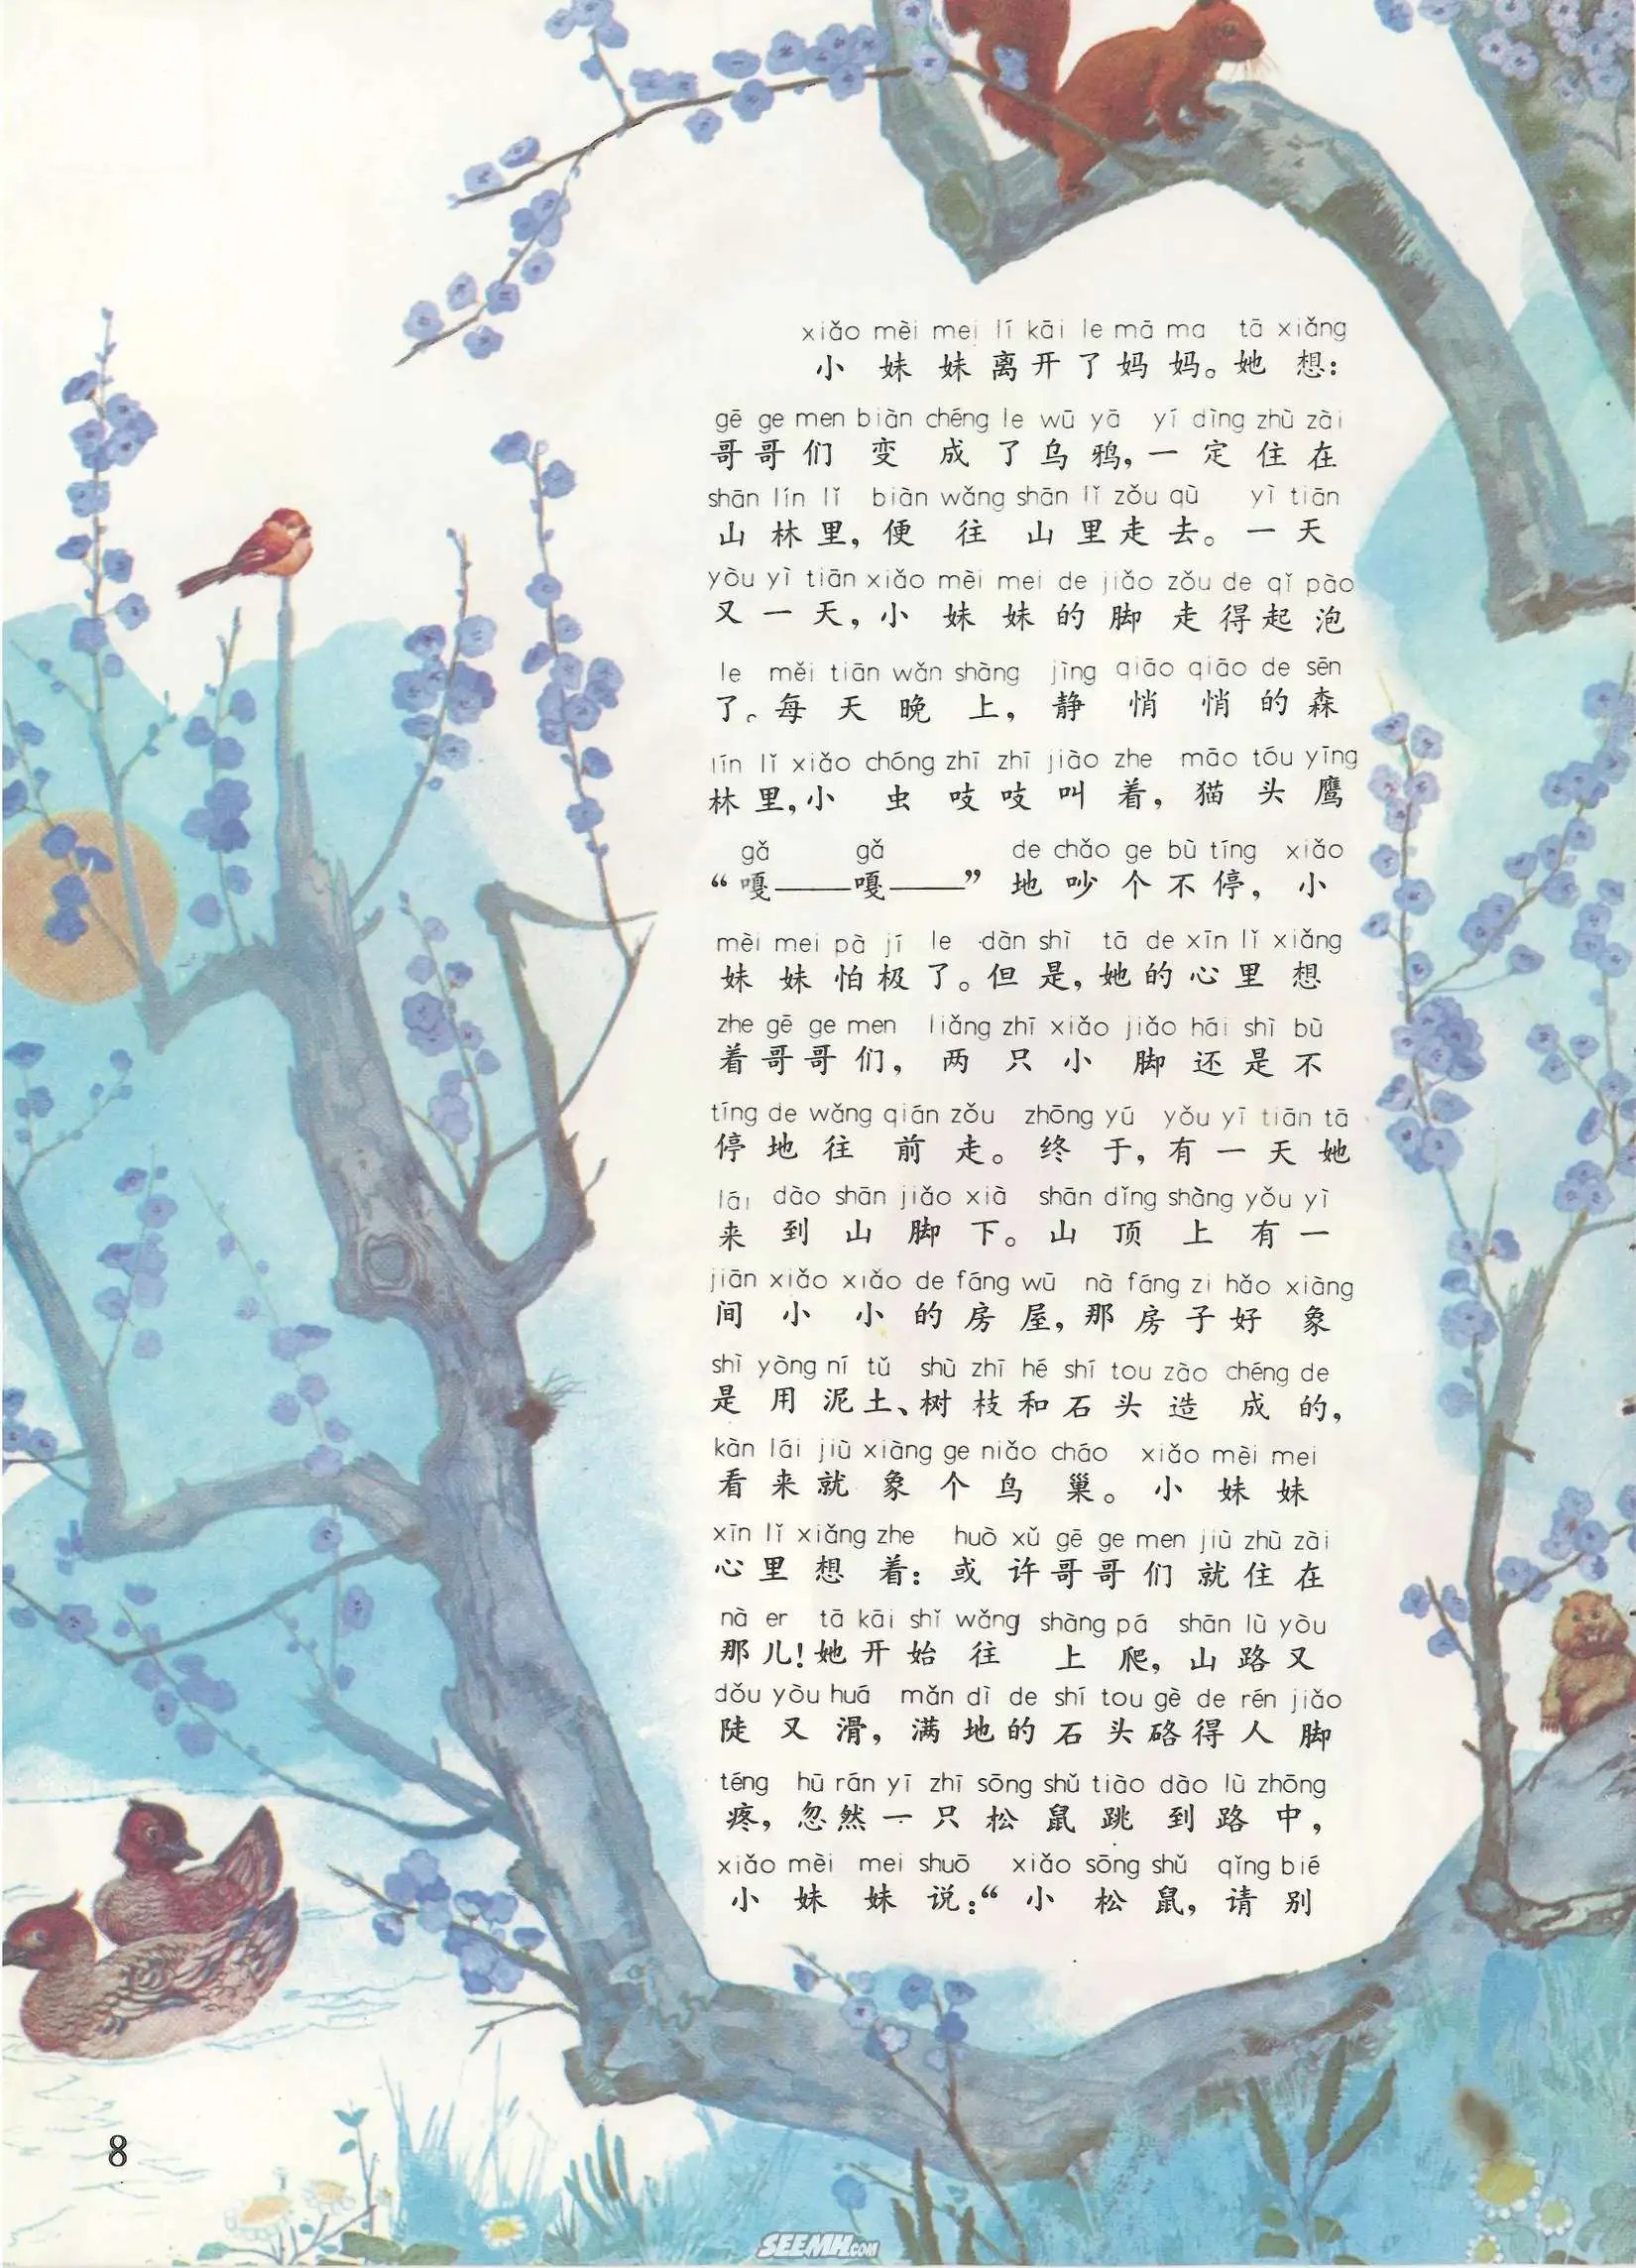 xiǎo mèi mei lí kāi le mā ma tā xiǎng
小妹妹离开了妈妈。她想：
gē ge men biàn chéng le wū yā yí dìng zhù zài
哥哥们变成了乌鸦，一定住在
shān lín lǐ biàn wǎng shān lǐ zǒu qù yì tiān
山林里，便往山里走去。一天
yòu yì tiān xiǎo mèi mei de jiǎo zǒu de qǐ pào
又一天，小妹妹的脚走得起泡
le měi tiān wǎn shàng jìng qiāo qiāo de sēn
了。每天晚上，静悄悄的森
lín lǐ xiǎo chóng zhī zhī jiào zhe māo tóu yīng
林里，小虫吱吱叫着，猫头鹰
gǎ gǎ de chǎo ge bù tíng xiǎo
“嘎——嘎——”地吵个不停，小
mèi mei pà jí le dàn shì tā de xīn lǐ xiǎng
妹妹怕极了。但是，她的心里想
zhe gē ge men liǎng zhī xiǎo jiǎo hái shì bù
着哥哥们，两只小脚还是不
tíng de wǎng qián zǒu zhōng yú yǒu yī tiān tā
停地往前走。终于，有一天她
lái dào shān jiǎo xià shān dǐng shàng yǒu yì
来到山脚下。山顶上有一
jiān xiǎo xiǎo de fáng wū nà fáng zi hǎo xiàng
间小小的房屋，那房子好象
shì yòng ní tǔ shù zhī hé shí tou zào chéng de
是用泥土、树枝和石头造成的，
kàn lái jiù xiàng ge niǎo cháo xiǎo mèi mei
看来就象个鸟巢。小妹妹
xīn lǐ xiǎng zhe huò xǔ gē ge men jiù zhù zài
心里想着：或许哥哥们就住在
nà er tā kāi shǐ wǎng shàng pá shān lù yòu
那儿！她开始往上爬，山路又
dǒu yòu huá mǎn dì de shí tou gè de rén jiǎo
陡又滑，满地的石头硌得人脚
téng hū rán yī zhī sōng shǔ tiào dào lù zhōng
疼，忽然一只松鼠跳到路中，
xiǎo mèi mei shuō xiǎo sōng shǔ qǐng bié
小妹妹说：“小松鼠，请别
8
SEEMH.COM